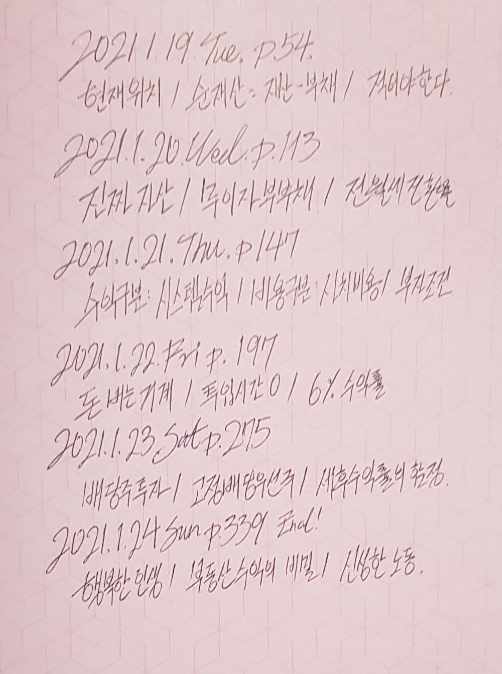 2021.1.19.Tue. p.54.
현재위치 / 순재산 = 재산-부채 / 적어야한다.
2021.1.20.Wed.p.113
진짜자산 / 무이자부부채 / 전월세전환율
2021.1.21.Thu.p147
수익구분: 시스템수익 / 비용구분: 사치비용 / 부자조건
2021.1.22.Fri p.197
돈 버는기계 / 투입시간 0 / 6% 수익률
2021.1.23.Sat p.275
배당주투자 / 고정배당우선주 / 세후수익률의 함정.
2021.1.24 Sun p.339 End!
행복한 인생 / 부동산수익의 비밀 / 신성한 노동.